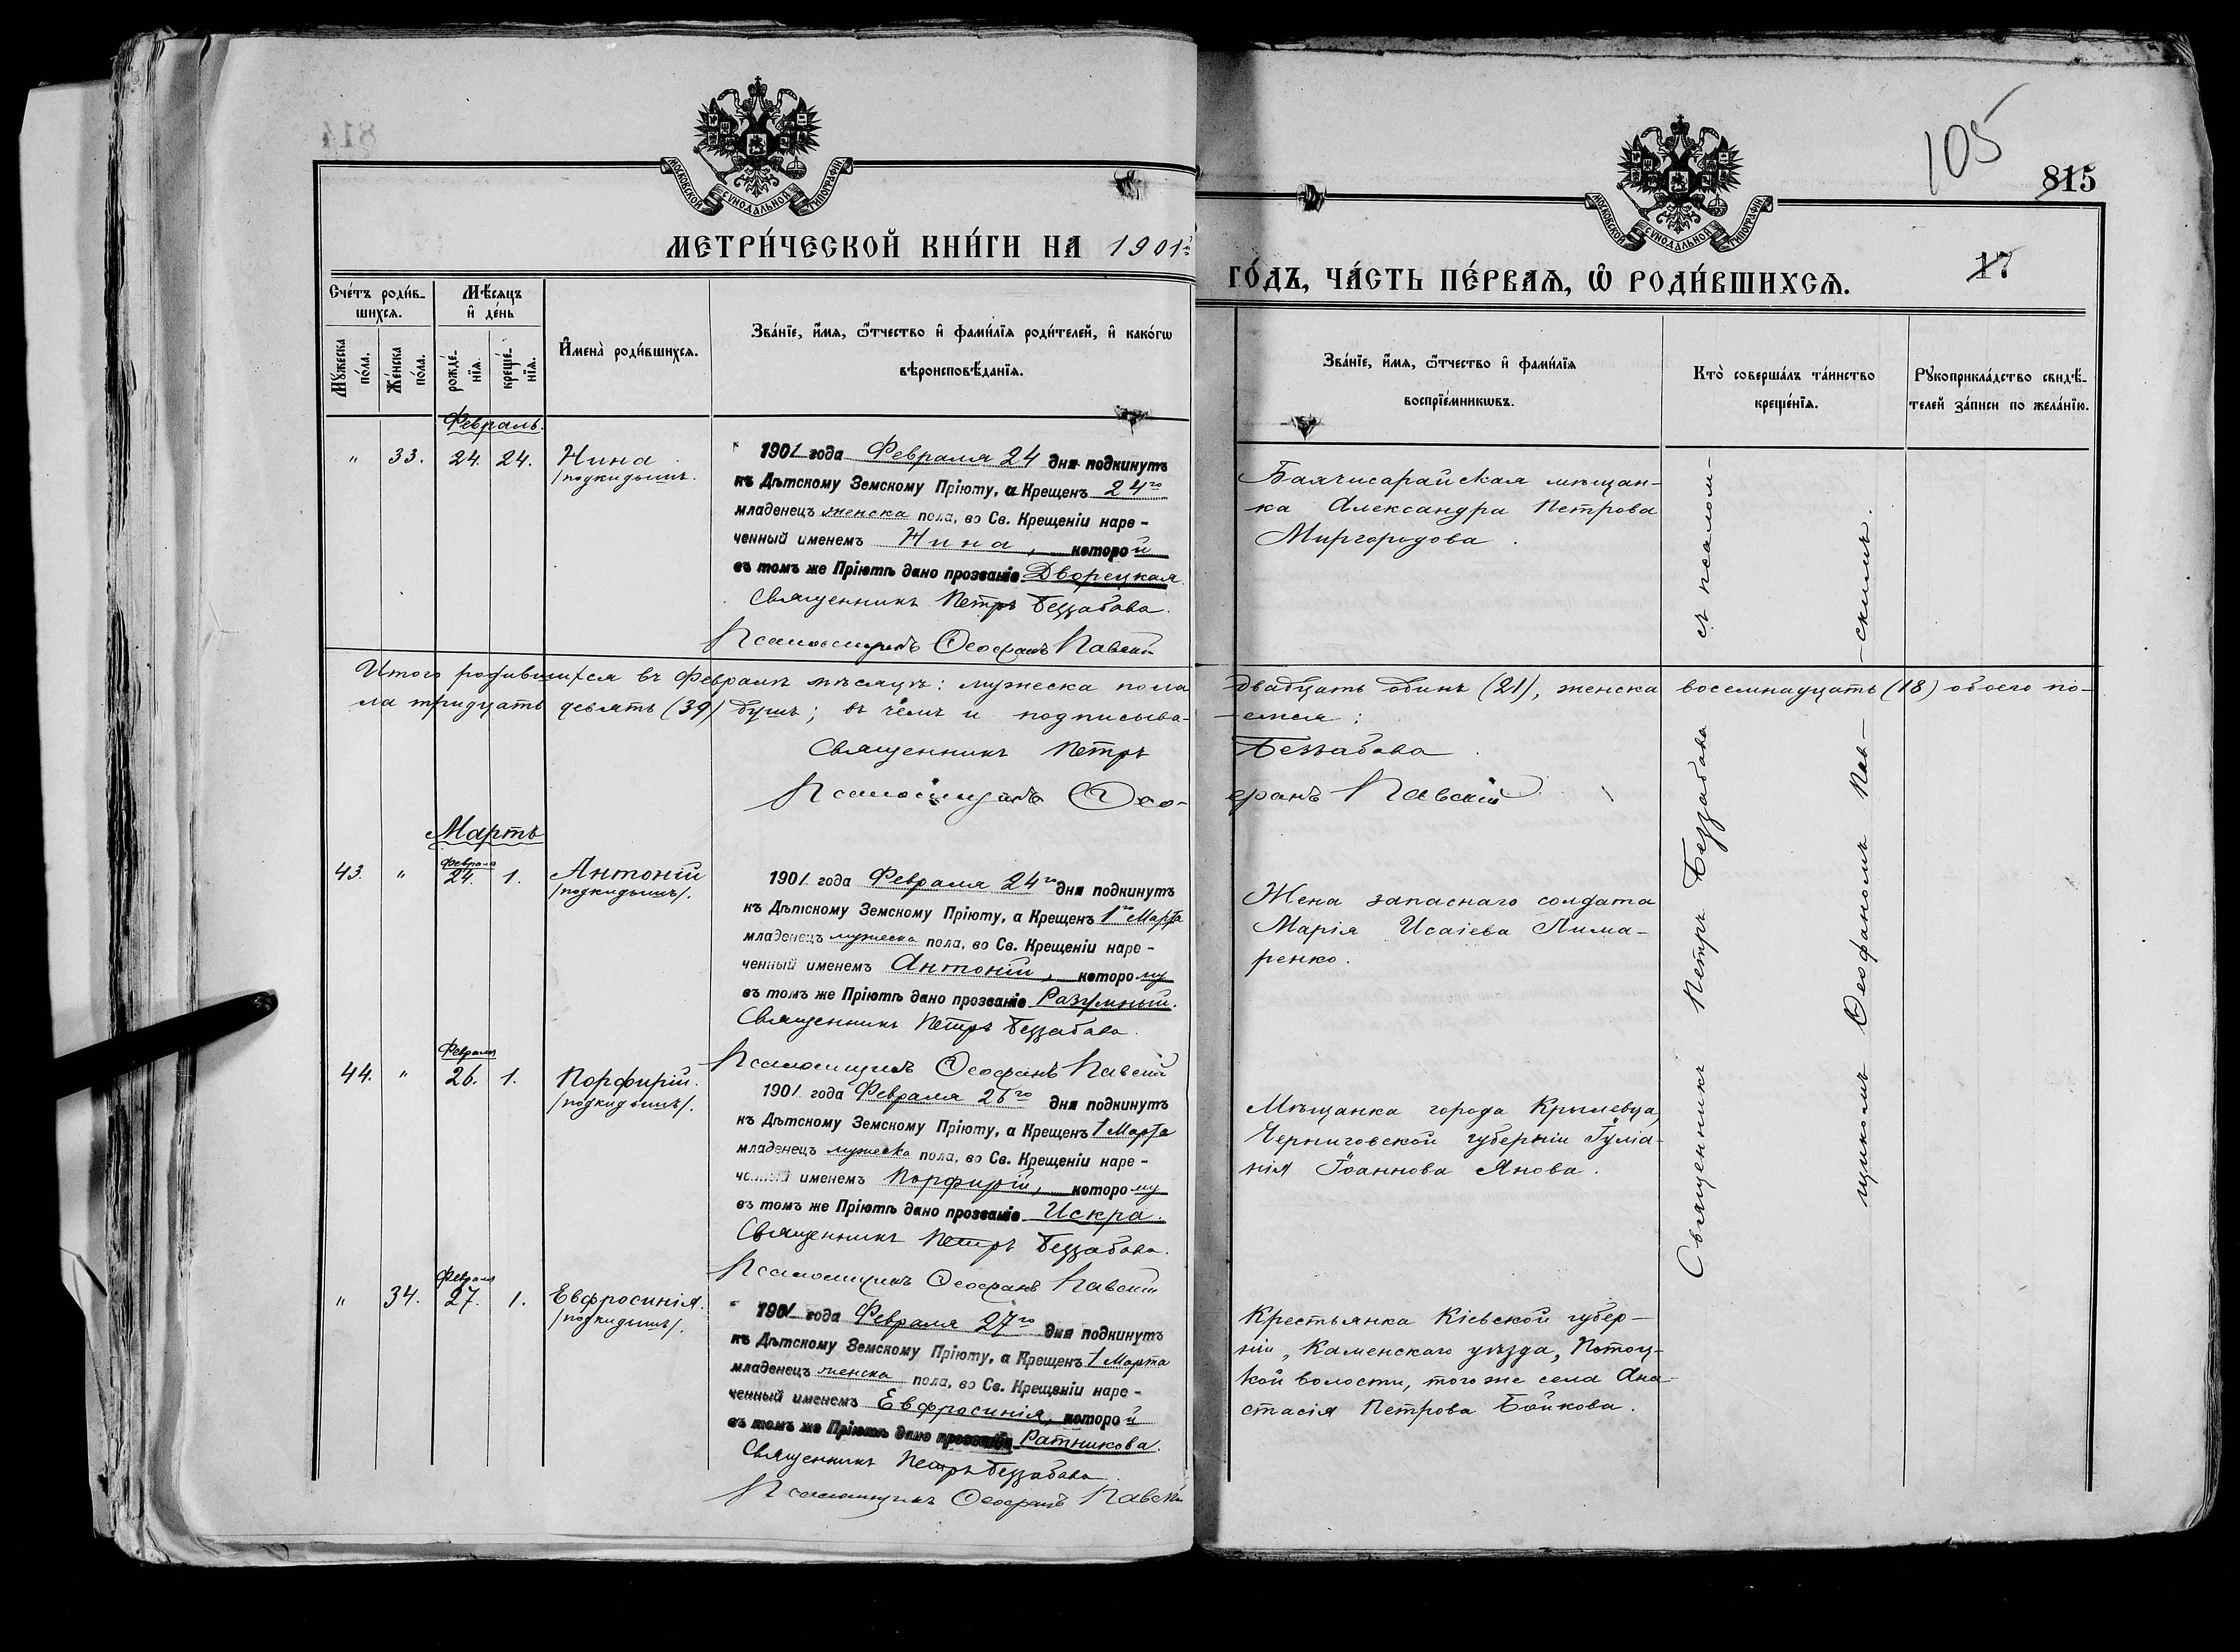 105
815
МОСКОВСКОЙ СѴНОДАЛЬНОЙ ТИПОГРАФІИ
МОСКОВСКОЙ СѴНОДАЛЬНОЙ ТИПОГРАФІИ
МЕТРИ́ЧЕСКОЙ КНИ́ГИ НА 1901й
ГО́ДЪ, ЧА́СТЬ ПЕ́РВАѦ, Ѽ РОДИ́ВШИХСѦ.
17
Счéтъ роди́в-
шихсѧ.
Мꙋ́жеска по́ла.
Же́нска по́ла.
Мѣ́сѧцъ
и҆ де́нь
рожде́-
нїѧ.
креще́-
нїѧ.
И҆мена̀ роди́вшихсѧ.
Зва́нїе, и҆́мѧ, ѻ҆́тчество и҆ фами́лїѧ роди́телей, и҆ како́гѡ
вѣроисповѣ́данїѧ.
Зва́нїе, и҆́мѧ, ѻ҆́тчество и҆ фами́лїѧ
воспрїе́мникѡвъ.
Кто̀ соверша́лъ та́инство
креще́нїѧ.
Рꙋкоприкла́дство свидѣ́-
телей за́писи по жела́нїю.
Февраль.
" 33. 24. 24. Нина
/подкидышъ.
1901 года Февраля 24 дня подкинутъ
къ Дѣтскому Земскому Пріюту, а Крещенъ 24го
младенецъ женска пола, во Св. Крещеніи наре-
ченный именемъ Нина, которой
въ томъ же Пріютѣ дано прозваніе Дворецкая.
Священникъ Петръ Беззабава.
Псаломщикъ Ѳеофанъ Павскій
Бахчисарайская мѣщан-
ка Александра Петрова
Миргородова.
Итого родившихся въ Февралѣ мѣсяцѣ: мужеска пола двадцать одинъ (21), женска восемнадцать (18) обоего по-
ла тридцать девять (39) душъ; въ чемъ и подписыва-
емся:
Священникъ Петръ Беззабава.
Псаломщикъ Ѳеофанъ Павскій
Мартъ
43. " Февраля 24. 1. Антоній
/подкидышъ/.
1901 года Февраля 24го дня подкинутъ
къ Дѣтскому Земскому Пріюту, а Крещенъ 1го Марта
младенецъ мужеска пола, во Св. Крещеніи наре-
ченный именемъ Антоній, которому
въ томъ же Пріютѣ дано прозваніе Разумный.
Священникъ Петръ Беззабава.
Псаломщикъ Ѳеофанъ Павскій
Жена запаснаго солдата
Марія Исаіева Лима-
ренко.
44. " Февраля 26. 1. Порфирій.
/подкидышъ/.
1901 года Февраля 26го дня подкинутъ
къ Дѣтскому Земскому Пріюту, а Крещенъ 1 Марта
младенецъ мужеска пола, во Св. Крещеніи наре-
ченный именемъ Порфирій, которому
въ томъ же Пріютѣ дано прозваніе Искра.
Священникъ Петръ Беззабава.
Псаломщикъ Ѳеофанъ Павскій
Мѣщанка города
Черниговской губерніи Іуліа-
нія Іоаннова Янова.
" 34. Февраля 27. 1. Евфросинія.
/подкидышъ/.
1901 года Февраля 27го дня подкинутъ
къ Дѣтскому Земскому Пріюту, а Крещенъ 1 Марта
младенецъ женска пола, во Св. Крещеніи наре-
ченный именемъ Евфросинія, которой
въ томъ же Пріютѣ дано прозваніе Ратникова.
Священникъ Петръ Беззабава
Псаломщикъ Ѳеофанъ Павскій
Крестьянка Кіевской губер-
ніи, Каменскаго уѣзда, Потоц-
кой волости, того же села Ана-
стасія Петрова Бойкова.
Священникъ Петръ Беззабава съ псалом-
щикомъ Ѳеофаномъ Пав-
скимъ.